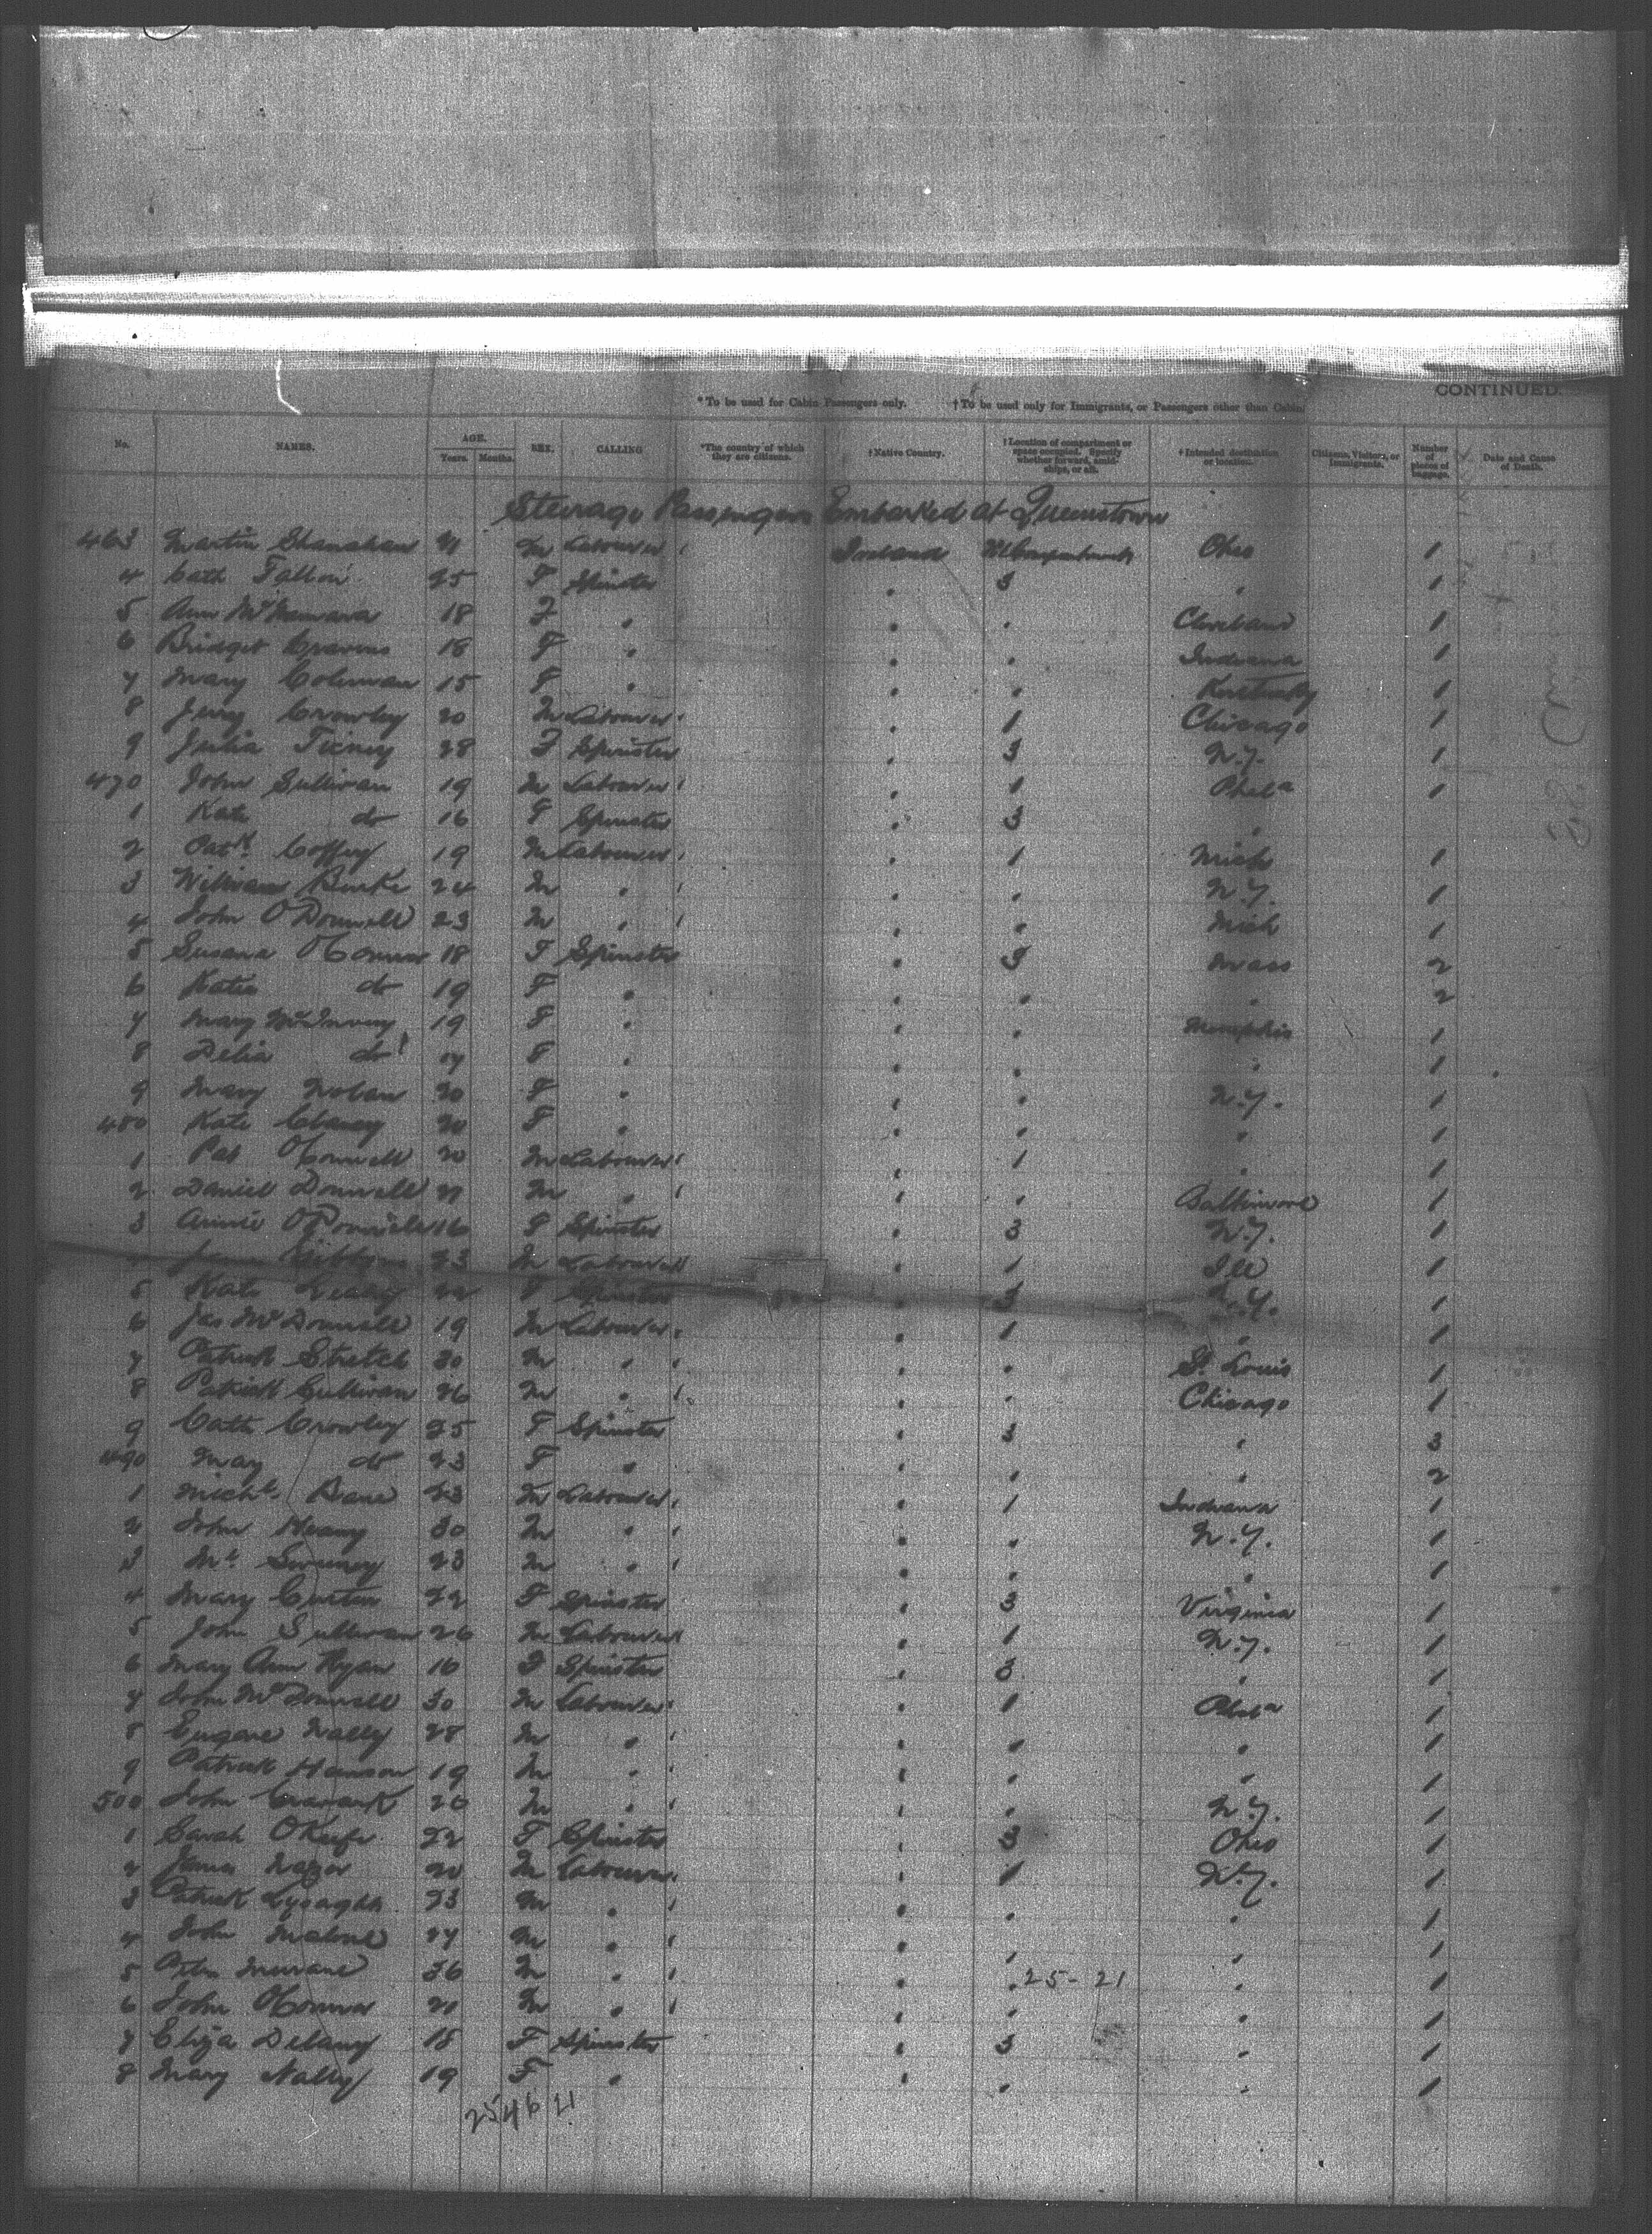 CONTINUED.
*To be used for Cabin Passengers only. †To be used only for Immigrants, or Passengers other than Cabin.
No. NAMES. AGE. Years. Months. SEX. CALLING *The country of which they are citizens. †Native Country. †Location of compartment or space occupied. Specify whether forward, amidships, or aft. †Intended destination or location. Citizens, Visitors, or Immigrants. Number of pieces of baggage. Date and Cause of Death.
Steerage Passengers Embarked at Queenstown
463 Martin Shanahan 21 M Labourer Ireland Ohio 1
4 Cath Fallon 25 F Spinster " 3 " 1
5 Ann McNamara 18 F " " " Cleveland 1
6 Bridget Cravens 18 F " " " Indiana 1
7 Mary Coleman 15 F " " " Kentucky 1
8 Jerry Crowley 20 M Labourer " 1 Chicago 1
9 Julia Tierney 28 F Spinster " 3 N.Y. 1
470 John Sullivan 19 M Labourer " 1 Phila 1
1 Kate do 16 F Spinster " 3 "
2 Patk. Coffey 19 M Labourer " 1 Mich 1
3 William Burke 24 M " " " N.Y. 1
4 John O'Donnell 23 M " " " Mich 1
5 Susana O'Connor 18 F Spinster " 3 Mass 2
6 Kate do 19 F " " " " 2
7 Mary 19 F " " " Memphis 1
8 Delia do 17 F " " " " 1
9 Mary Nolan 20 F " " " N.Y. 1
480 Kate Clancy 20 F " " " " 1
1 Pat O'Connell 20 M Labourer " 1 " 1
2 Daniel Donnell 21 M " " " Baltimore 1
3 Annie O'Donnell 16 F Spinster " 3 N.Y. 1
James Gibbons 23 M Labourer " 1 Ill 1
5 Kate Leary 22 F Spinster " 3 N.Y. 1
6 Jas McDonnell 19 M Labourer " 1 " 1
7 Patrick Stretch 30 M " " " St. Louis 1
8 Patrick Sullivan 26 M " " " Chicago 1
9 Cath Crowley 25 F Spinster " 3 " 3
490 May do 23 F " " " " 2
1 Michl. Bane 23 M Labourer " 1 Indiana 1
2 John Heany 30 M " " " N.Y. 1
3 Ml. Sweeney 23 M " " " " 1
4 Mary Curtin 22 F Spinster " 3 Virginia 1
5 John Sullivan 26 M Labourer " 1 N.Y. 1
6 Mary Ann Ryan 16 F Spinster " 3 " 1
7 John McDonnell 30 M Labourer " 1 Phila 1
8 Eugene Nally 28 M " " " " 1
9 Patrick 19 M " " " " 1
500 John 20 M " " " N.Y. 1
1 Sarah O'Keefe 22 F Spinster " 3 Ohio 1
2 James 20 M Labourer " 1 N.Y. 1
3 Patrick Lysaght 23 M " " " " 1
4 John Malone 27 M " " " " 1
5 36 M " " " 25-21 " 1
6 John O'Connor 21 M " " " " 1
7 Eliza Delany 18 F Spinster " 3 " 1
8 Mary Nally 19 F " " " " 1